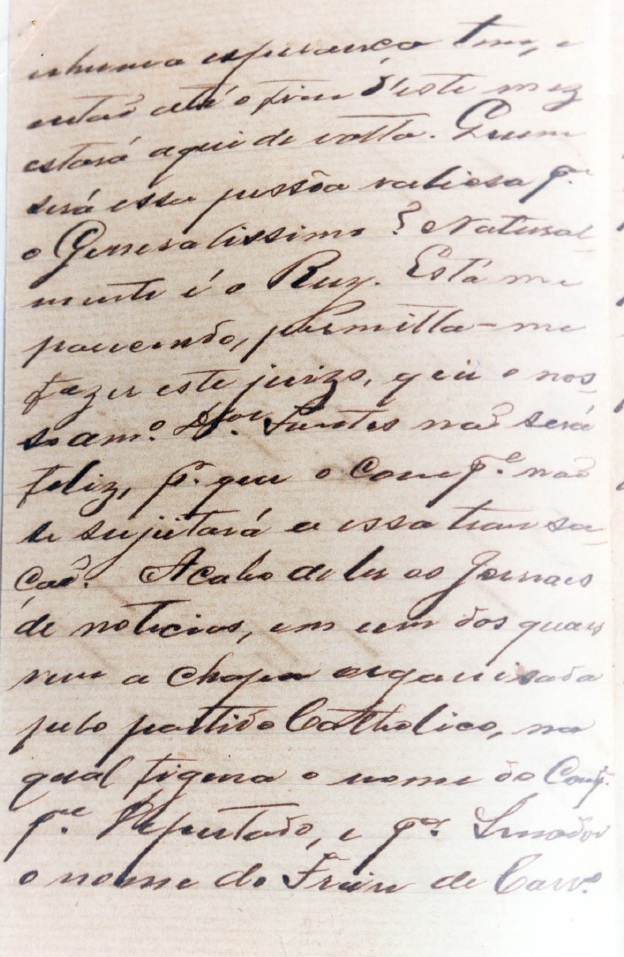 nhuma esperança tem, e
então até o fim d'este mez
estará aqui de volta. Quem
será essa pessôa valiosa p.ª
o Generalissimo? Natural-
mente é o Ruy. Está me
parecendo, permitta-me
fazer este juizo, que o nos-
so am.º D.or Santos não será
feliz, p.r que o Cons.º não
se sujeitará a essa transa-
ção. Acabo de ler os Jornaes
de noticias, em um dos quaes
vem a chapa organisada
pelo partido Catholico, na
qual figura o nome do Cons.
p.ª Deputado, e p.ª Senador
o nome do Freire de Carv.º